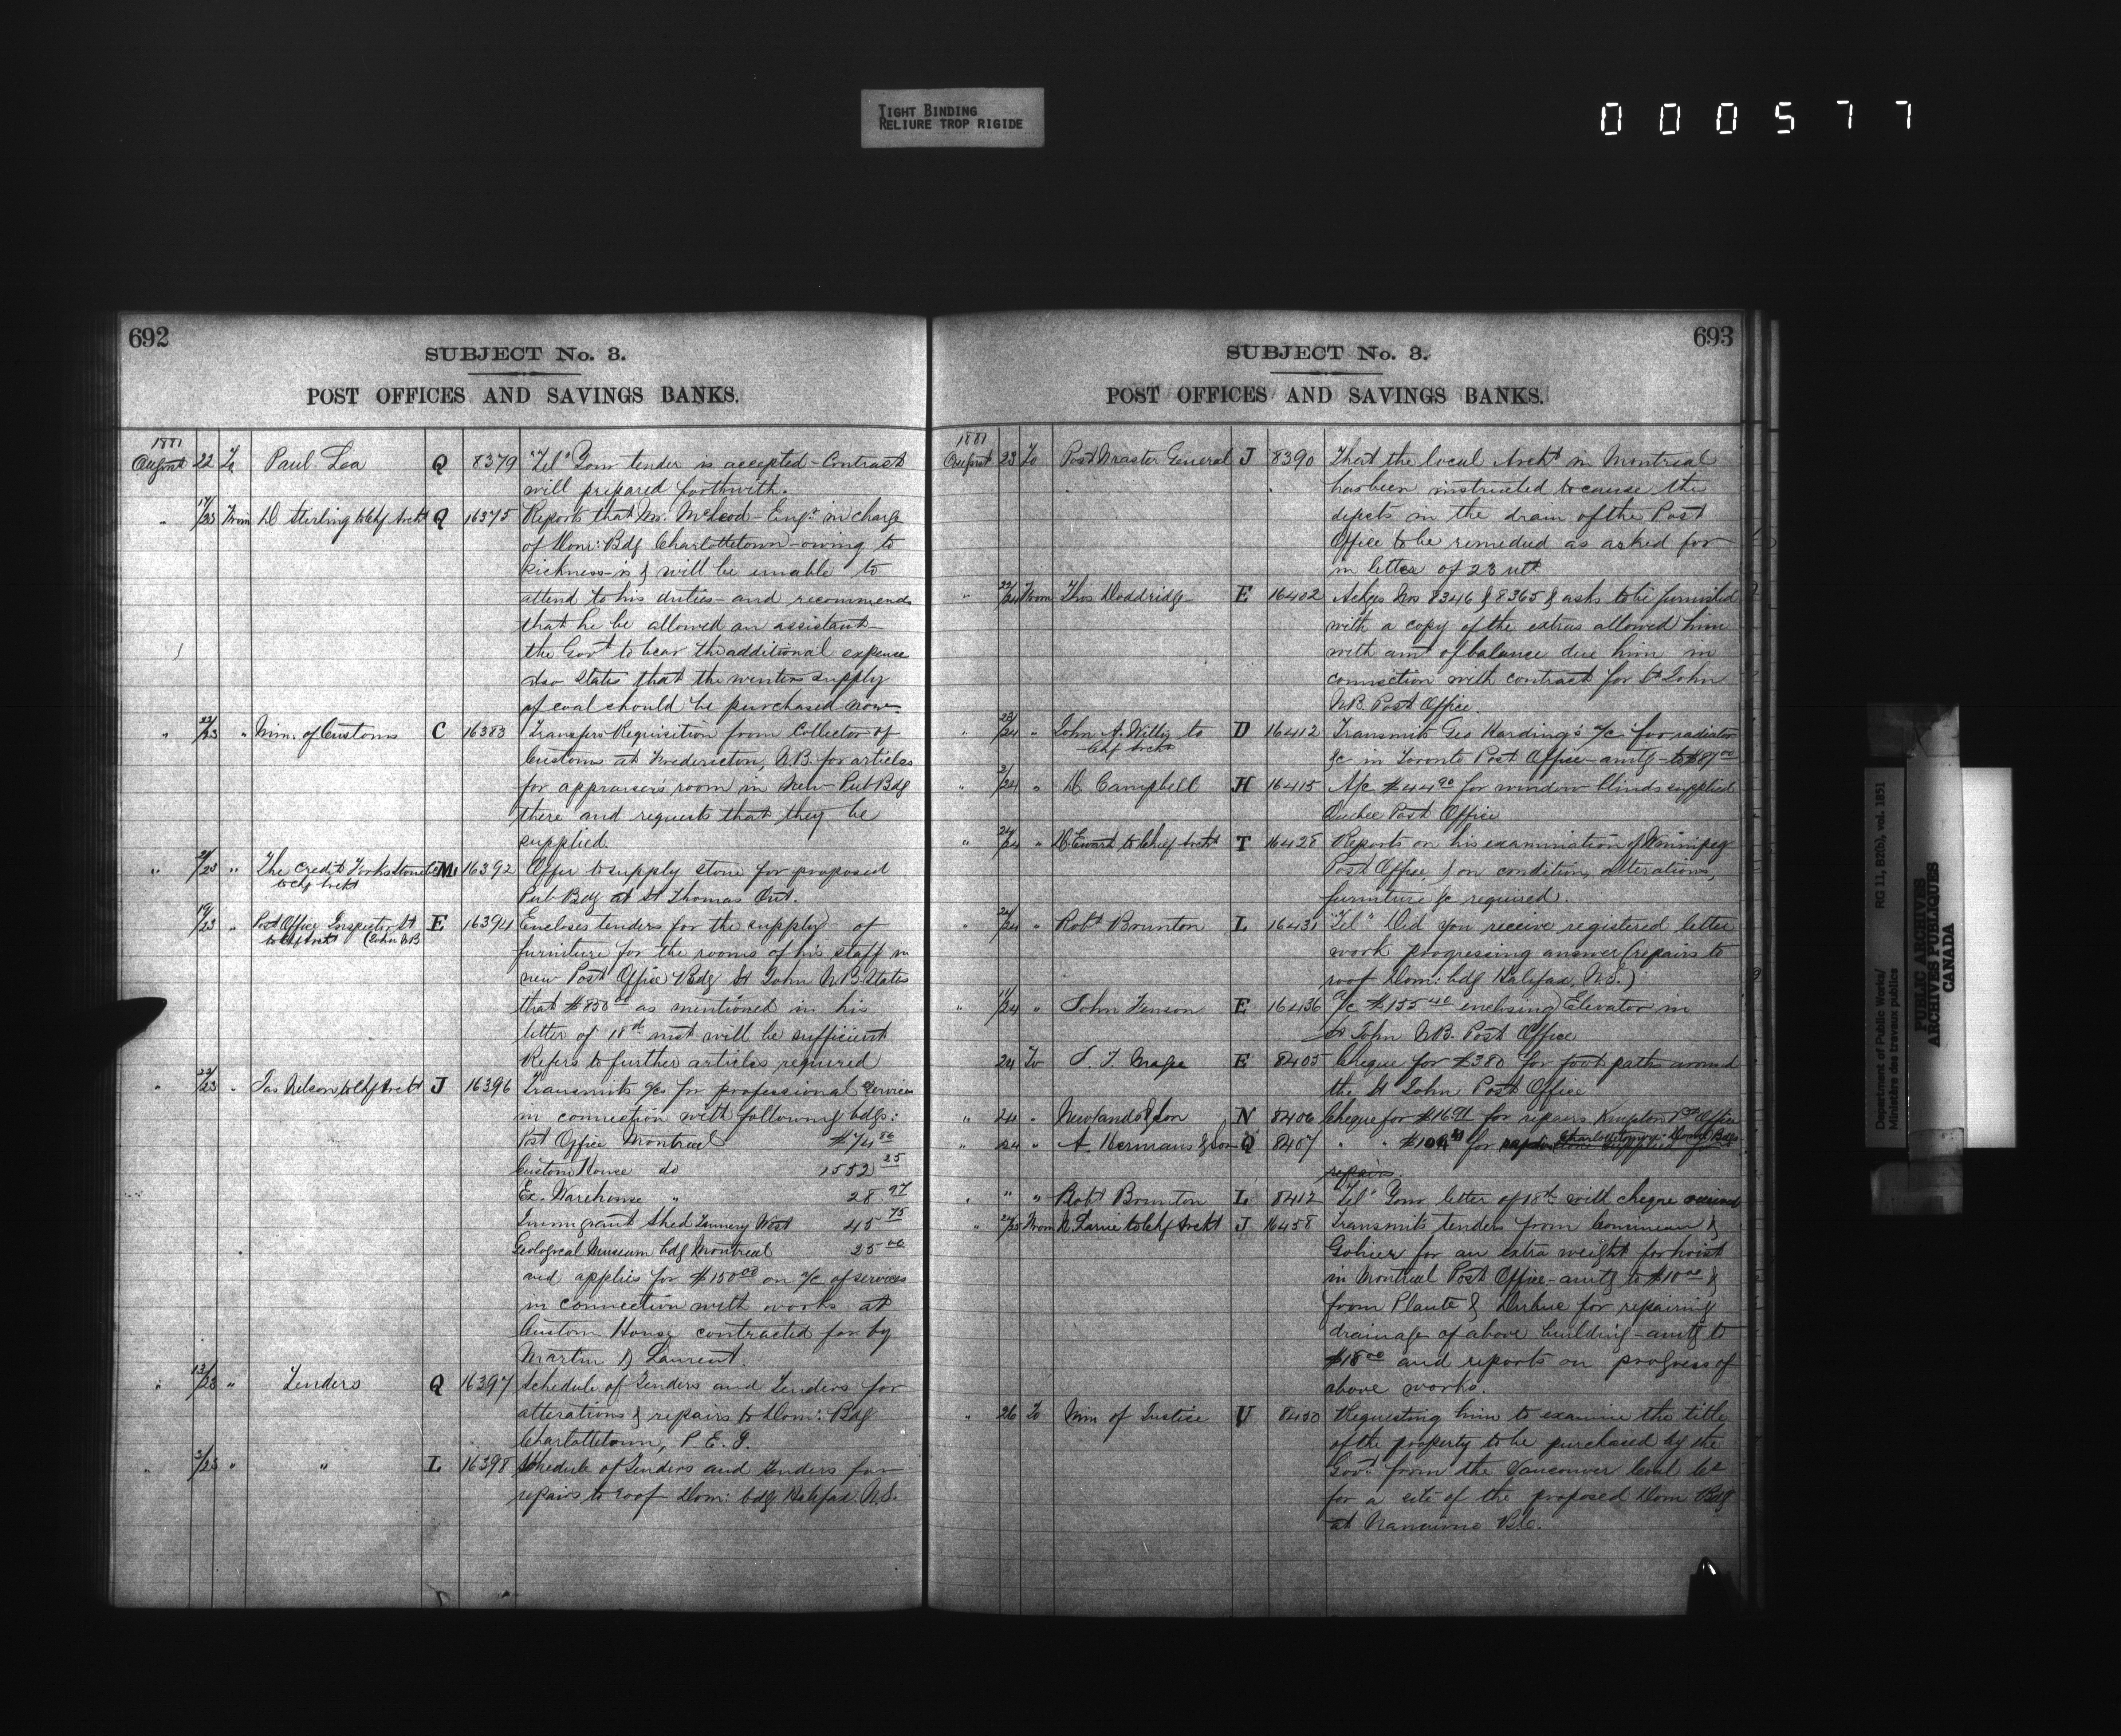 TIGHT BINDING
RELIURE TROP RIGIDE
000577
692
SUBJECT No. 3.
POST OFFICES AND SAVINGS BANKS.
1881
August 22 To Paul Lea Q 8379 "Tel" Your tender is accepted - Contract
will prepared forthwith.
" 17/23 From D Sterling to Chf Archt Q 16375 Reports that Mr. McLeod - Engr in charge
of Dom: Bdg Charlottetown - owing to
sickness - is & will be unable to
attend to his duties - and recommends
that he be allowed an assistant -
the Govt to bear the additional expense
also states that the winters supply
of coal should be purchased now -
" 22/23 " Min. of Customs C 16383 Transfers Requisition from Collector of
Customs at Fredericton, N.B. for articles
for appraiser's room in New Pub Bdg
there and requests that they be
supplied.
" 21/23 " The Credit Forks Stone Co M. 16392 Offer to supply stone for proposed
to Chf Archt
Pub Bdg at St Thomas Ont.
" 19/23 " Post Office Inspector St E 16394 Encloses tenders for the supply of
to Chf Archt (John NB
furniture for the rooms of his staff in
new Post Office Bdg St John N.B. States
that $850 00 as mentioned in his
letter of 18th inst will be sufficient
Refers to further articles required
" 22/23 " Jas Nelson to Chf Archt J 16396 Transmits a/cs for professional services
in connection with following bdgs:
Post Office Montreal $74 86
Custom House do 1552 25
Ex. Warehouse " 28 97
Immigrant Shed Tannery West 45 75
Geological Museum bdg Montreal 25 00
and applies for $150 00 on a/c of services
in connection with works at
Custom House contracted for by
Martin & Laurent.
" 13/23 " Tenders Q 16397 Schedule of Tenders and Tenders for
alterations & repairs to Dom: Bdg
Charlottetown, P. E. I.
" 3/23 " " L 16398 Schedule of Tenders and tenders for
repairs to roof Dom: bdg Halifax N.S.
693
SUBJECT No. 3.
POST OFFICES AND SAVINGS BANKS.
1881
August 23 To Post Master General J 8390 That the local Archt in Montreal
has been instructed to cause the
defects in the drain of the Post
Office to be remedied as asked for
in letter of 23 ult
" 22/24 From Thos Doddridge E 16402 Ackges Nos 8346 & 8365 & asks to be furnished
with a copy of the extras allowed him
with amt of balance due him in
connection with contract for St John
N.B. Post Office.
" 23/24 " John A. Willis to D 16412 Transmits Geo Harding's a/c for radiator
Chf Archt
&c in Toronto Post Office - amtg - to $87 00
" /24 " D. Campbell H 16415 A/c $44 90 for window blinds supplied
Quebec Post Office
" 24/24 " D. Ewart to Chief Archt T 16428 Reports on his examination of Winnipeg
Post Office, & on condition, alterations,
furniture &c required.
" 24/24 " Robt Brunton L 16431 "Tel" Did you receive registered letter
work progressing answer (repairs to
roof Dom: bdg Halifax, N.S.)
" 11/24 " John Fenson E 16436 a/c $155 40 enclosing Elevator in
St John N.B. Post Office
24 To E 8405 Cheque for $380 for foot paths around
the St John Post Office
" 24 " Newlands & Son N 8406 Cheque for $16 91 for repairs Kingston Post Office
" 24 " A. Hermans & Son Q 8407 " " for Charlottetown Domn Bdgs
repairs
" " " Robt Brunton L 8412 "Tel" Your letter of 18th with cheque received
" 24/25 From to Chf Archt J 16458 Transmits tenders from Comineau &
Gohier for an extra weight for hoist
in Montreal Post Office - amtg to $10 00 &
from Plante & Dubuc for repairing
drainage of above building - amtg to
$18 00 and reports on progress of
above works.
" 26 To Min of Justice U 8430 Requesting him to examine the title
of the property to be purchased by the
Govt from the Vancouver Coal Co
for a site of the proposed Dom Bdg
at Nanaimo B.C.
Department of Public Works/ RG 11, B2(b), vol. 1851
Ministère des travaux publics
PUBLIC ARCHIVES
ARCHIVES PUBLIQUES
CANADA